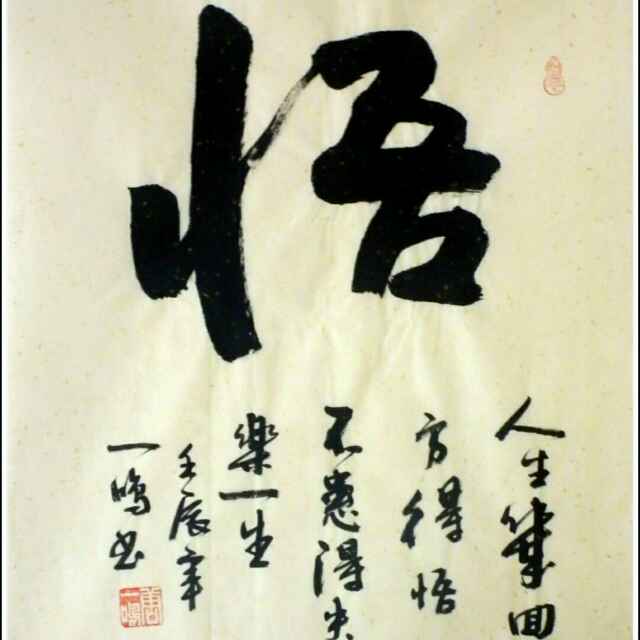 悟
人生几回
方得悟
不患得失
樂一生
壬辰年
一鳴书